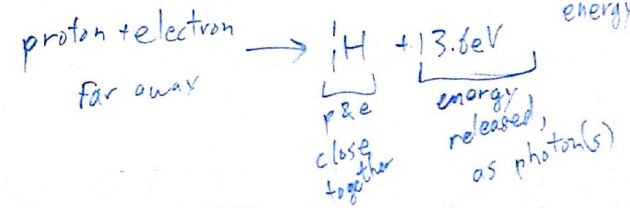 energy
proton + electron → ¹₁H + 13.6eV
far away
p & e
close
together
energy
released,
as photon(s)